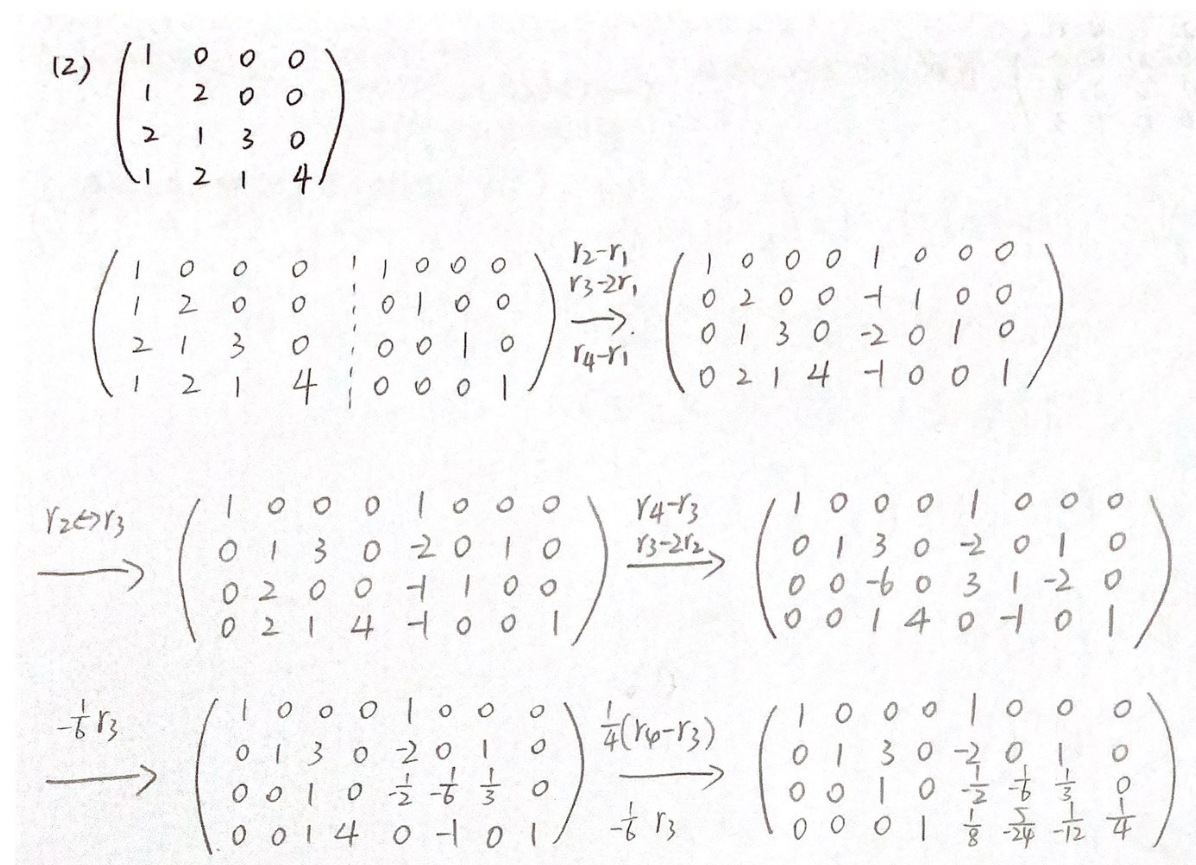 (2) ( 1 0 0 0
1 2 0 0
2 1 3 0
1 2 1 4 )
( 1 0 0 0 ¦ 1 0 0 0
1 2 0 0 ¦ 0 1 0 0
2 1 3 0 ¦ 0 0 1 0
1 2 1 4 ¦ 0 0 0 1 )
r2-r1
r3-2r1
→
r4-r1
( 1 0 0 0 1 0 0 0
0 2 0 0 -1 1 0 0
0 1 3 0 -2 0 1 0
0 2 1 4 -1 0 0 1 )
r2↔r3
→
( 1 0 0 0 1 0 0 0
0 1 3 0 -2 0 1 0
0 2 0 0 -1 1 0 0
0 2 1 4 -1 0 0 1 )
r4-r3
r3-2r2
→
( 1 0 0 0 1 0 0 0
0 1 3 0 -2 0 1 0
0 0 -6 0 3 1 -2 0
0 0 1 4 0 -1 0 1 )
-1/6 r3
→
( 1 0 0 0 1 0 0 0
0 1 3 0 -2 0 1 0
0 0 1 0 -1/2 -1/6 1/3 0
0 0 1 4 0 -1 0 1 )
1/4(r4-r3)
→
-1/6 r3
( 1 0 0 0 1 0 0 0
0 1 3 0 -2 0 1 0
0 0 1 0 -1/2 -1/6 1/3 0
0 0 0 1 1/8 -5/24 -1/12 1/4 )